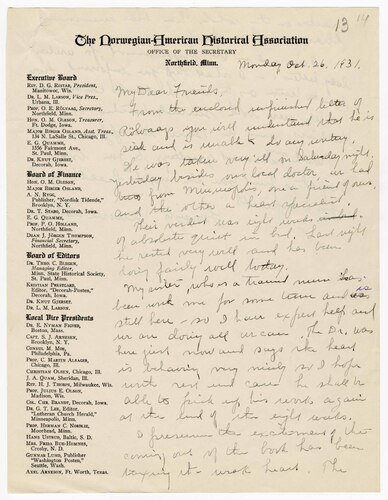 13 14
The Norwegian-American Historical Association
OFFICE OF THE SECRETARY
Northfield, Minn.
Monday Oct. 26, 1931.
Executive Board
REV. D. G. RISTAD, President,
Manitowoc, Wis.
DR. L. M. LARSON, Vice Pres.,
Urbana, Ill.
PROF. O. E. RÖLVAAG, Secretary,
Northfield, Minn.
HON. O. M. OLESON, Treasurer,
Ft. Dodge, Iowa
MAJOR BIRGER OSLAND, Asst. Treas.,
134 N. LaSalle St., Chicago, Ill.
E. G. QUAMME,
1536 Fairmont Ave.,
St. Paul, Minn.
DR. KNUT GJERSET,
Decorah, Iowa.
Board of Finance
HON. O. M. OLESON,
MAJOR BIRGER OSLAND,
A. N. RYGG,
Publisher, "Nordisk Tidende,"
Brooklyn, N. Y.
DR. T. STABO, Decorah, Iowa.
E. G. QUAMME,
PROF. P. O. HOLLAND,
Northfield, Minn.
DEAN J. JÖRGEN THOMPSON,
Financial Secretary,
Northfield, Minn.
Board of Editors
DR. THEO. C. BLEGEN,
Managing Editor
Minn. State Historical Society,
St. Paul, Minn.
KRISTIAN PRESTGARD,
Editor, "Decorah-Posten,"
Decorah, Iowa.
DR. KNUT GJERSET
DR. L. M. LARSON,
Local Vice Presidents
DR. E. NYMAN FIGVED,
Boston, Mass.
CAPT. S. J. ARNESEN,
Brooklyn, N. Y.
CONSUL M. MOE,
Philadelphia, Pa.
PROF. C. MARTIN ALSAGER,
Chicago, Ill.
CHRISTIAN OLSEN, Chicago, Ill.
J. A. QUAM, Sheridan, Ill.
REV. H. J. THORPE, Milwaukee, Wis.
PROF. JULIUS E. OLSON,
Madison, Wis.
CH. CHR. BRANDT, Decorah, Iowa.
DR. G. T. LEE, Editor,
"Lutheran Church Herald,"
Minneapolis, Minn.
PROF. HERMAN C. NORDLIE,
Moorhead, Minn.
HANS USTRUD, Baltic, S. D.
MRS. FRIDA BUE-HOMNES,
Crosby, N. D.
GUNNAR LUND, Publisher
"Washington Posten,"
Seattle, Wash.
AXEL ARNESON, Ft. Worth, Texas.
My Dear Friends,
From the enclosed unfinished letter of
Rölvaags you will understand that he is
sick and is unable to do any writing.
He was taken very ill on Saturday night.
Yesterday besides our local doctor, we had
two from Minneapolis, one a friend of ours
and the other a heart specialist.
Their verdict was eight weeks
of absolute quiet - but last night
he rested very well and has been
doing fairly well today.
My sister, who is a trained nurse has
been with me for some time and is
still here - so I have expert help and
we are doing all we can. The Dr. was
here just now and says the heart
is behaving very nicely so I hope
with rest and care he shall be
able to pick up his work again
at the end of the eight weeks.
I presume the excitement of the
coming out of the book has been
taxing it - weak heart. The